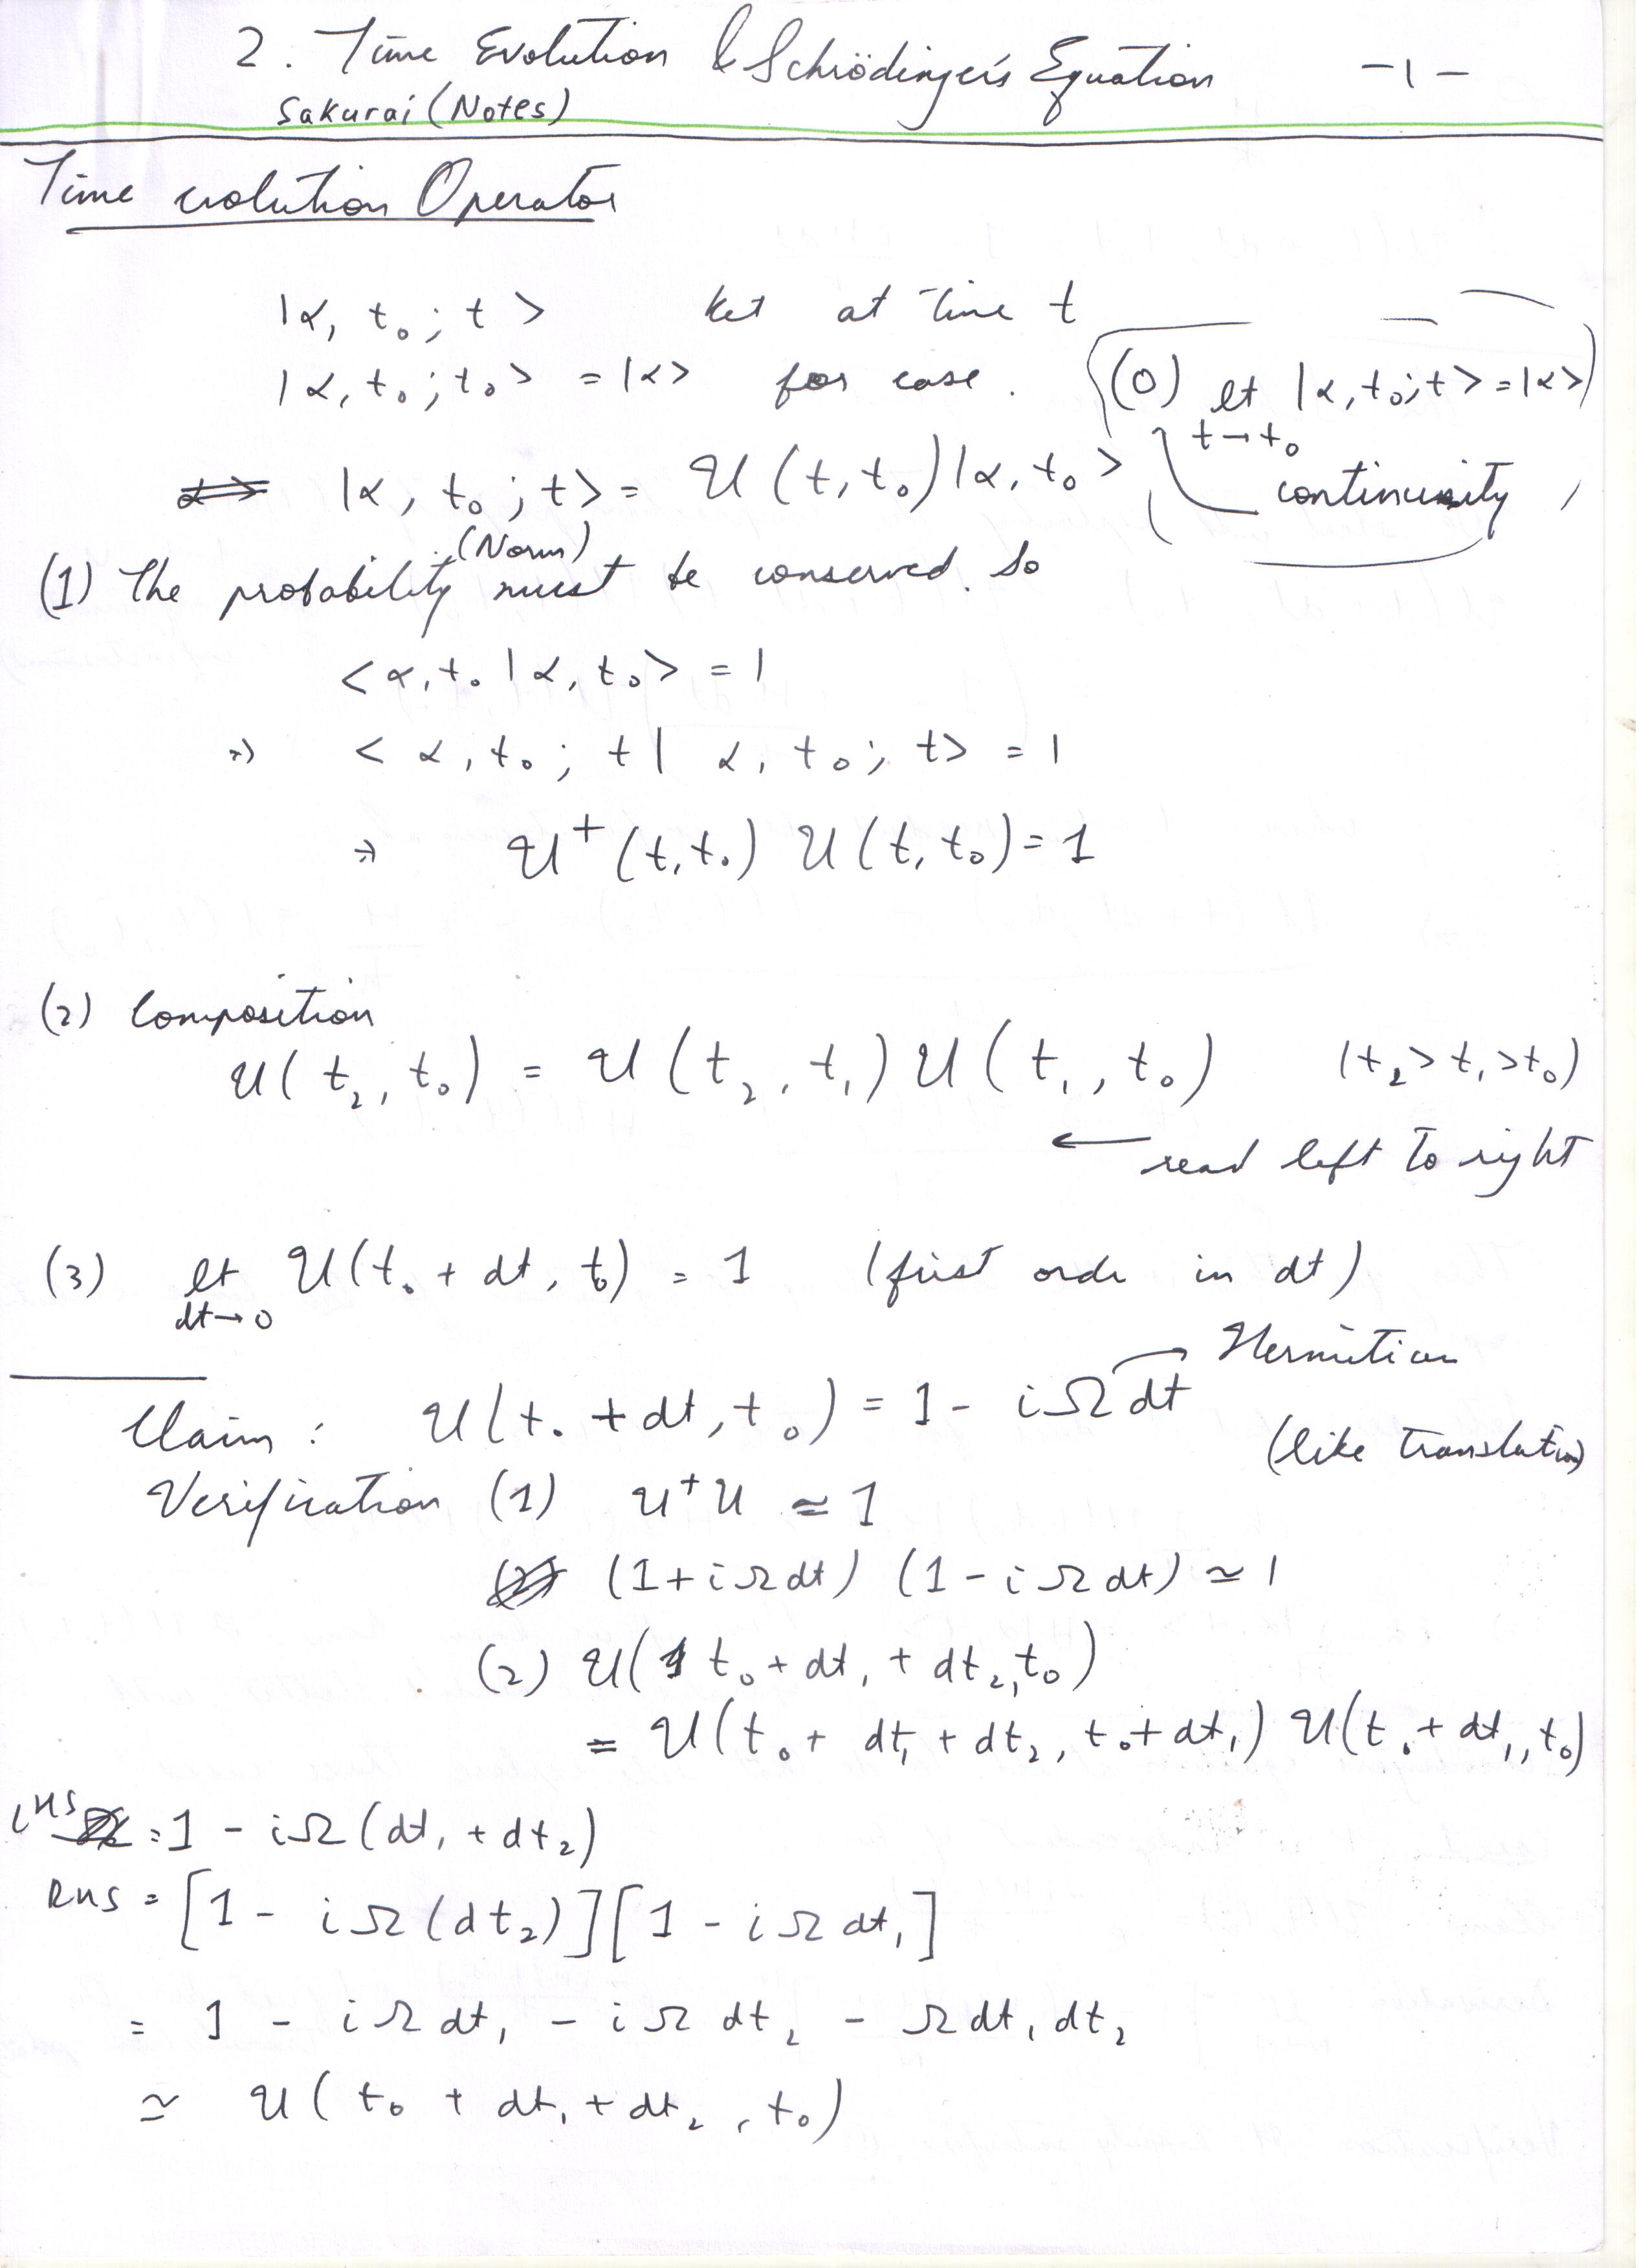 2. Time Evolution & Schrödinger's Equation -1-
Sakurai (Notes)
Time evolution Operator
|α, t₀; t> ket at time t
|α, t₀; t₀> = |α> for ease. (0) lt |α, t₀; t> = |α>
t→t₀
⇒ |α, t₀; t> = U(t, t₀)|α, t₀> continuity
(Norm)
(1) The probability must be conserved. So
<α, t₀|α, t₀> = 1
⇒ <α, t₀; t|α, t₀; t> = 1
⇒ U⁺(t, t₀) U(t, t₀) = 1
(2) Composition
U(t₂, t₀) = U(t₂, t₁) U(t₁, t₀) (t₂ > t₁ > t₀)
← read left to right
(3) lt U(t₀ + dt, t₀) = 1 (first order in dt)
dt→0
Hermitian
Claim: U(t₀ + dt, t₀) = 1 - iΩdt
(like translation)
Verification (1) U⁺U ≃ 1
(1 + iΩdt) (1 - iΩdt) ≃ 1
(2) U(t₀ + dt₁ + dt₂, t₀)
= U(t₀ + dt₁ + dt₂, t₀ + dt₁) U(t₀ + dt₁, t₀)
LHS = 1 - iΩ(dt₁ + dt₂)
RHS = [1 - iΩ(dt₂)][1 - iΩdt₁]
= 1 - iΩdt₁ - iΩdt₂ - Ωdt₁dt₂
≃ U(t₀ + dt₁ + dt₂, t₀)